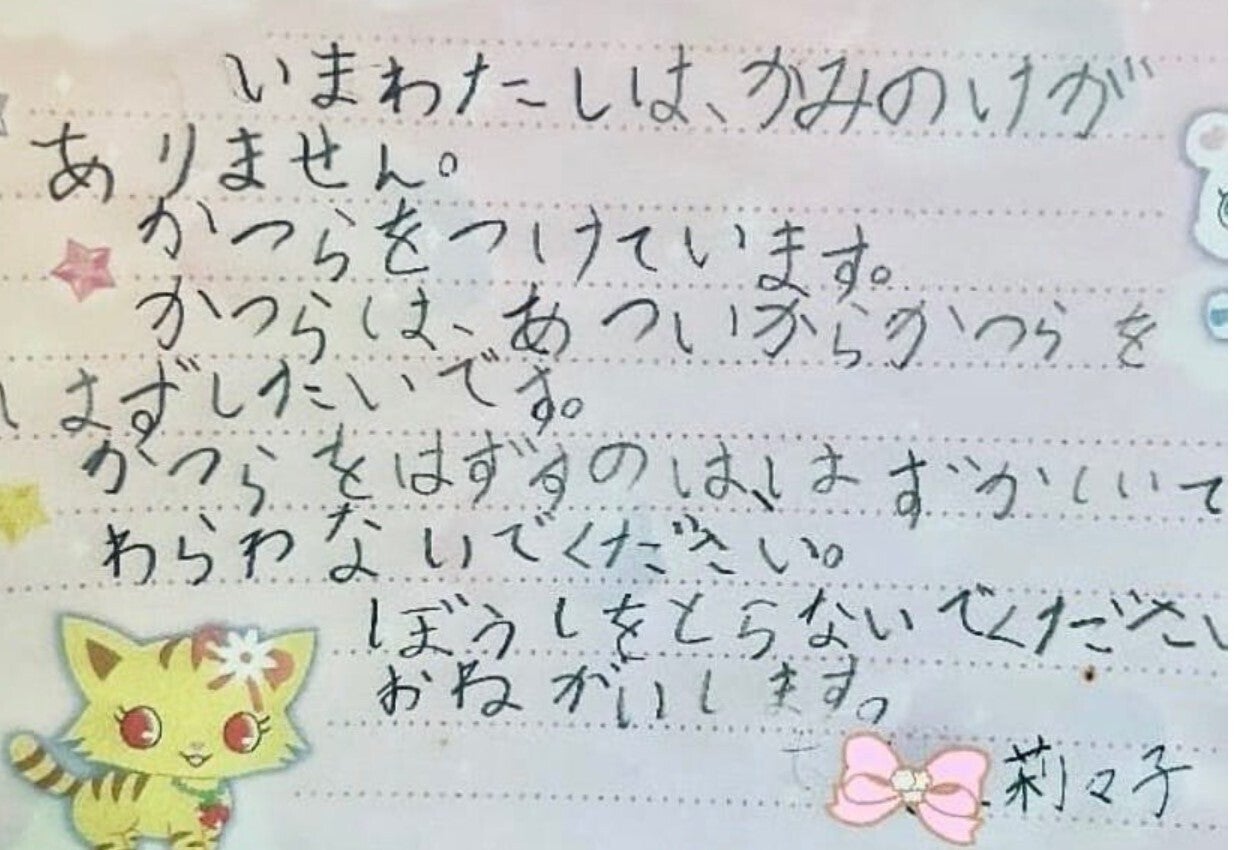 いまわたしは、かみのけが
ありません。
かつらをつけています。
かつらは、あついからかつらを
はずしたいです。
かつらをはずすのは、はずかしいて
わらわないでください。
ぼうしをとらないでください
おねがいします。
莉々子